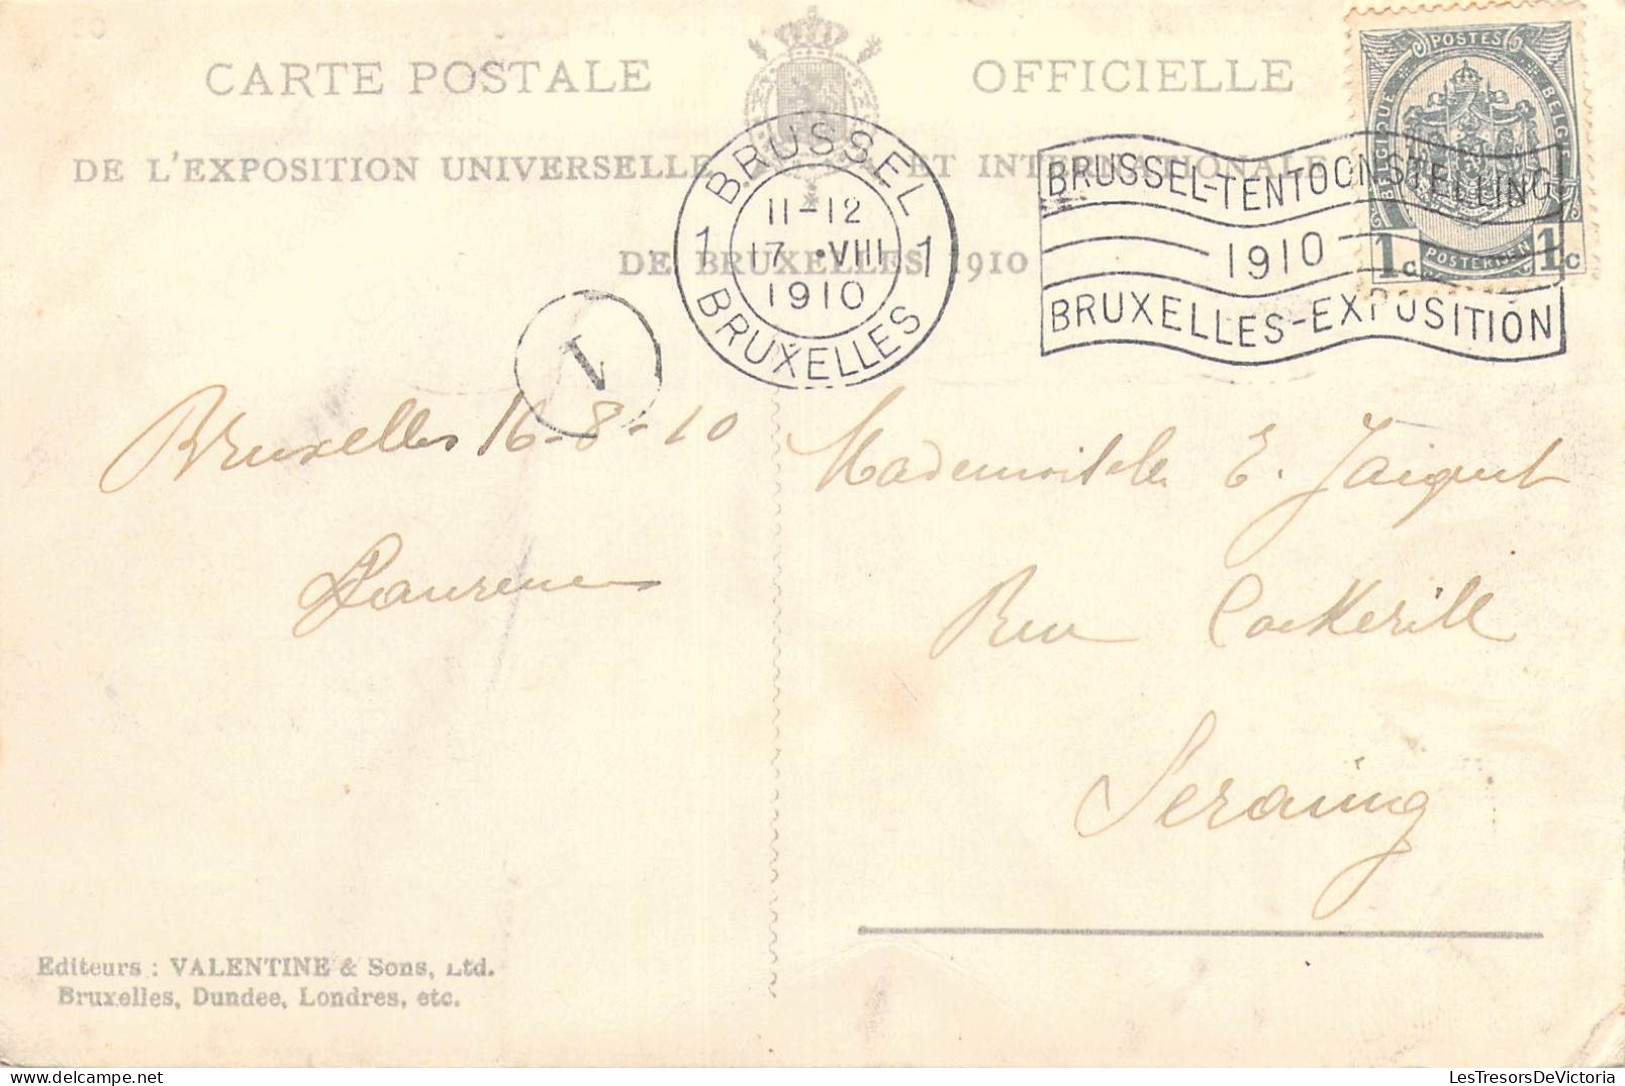 CARTE POSTALE OFFICIELLE
DE L'EXPOSITION UNIVERSELLE ET INTERNATIONALE
DE BRUXELLES 1910
BRUSSEL
11-12
1 17 •VIII 1
1910
BRUXELLES
BRUSSEL-TENTOONSTELLING
1910
BRUXELLES-EXPOSITION
POSTES
BELGIQUE BELGIE
POSTERIJEN
1c 1c
1
Bruxelles 16-8-10
Laurence
Mademoiselle E. Jaiquet
Rue Cockerill
Seraing
Editeurs : VALENTINE & Sons, Ltd.
Bruxelles, Dundee, Londres, etc.
LesTresorsDeVictoria